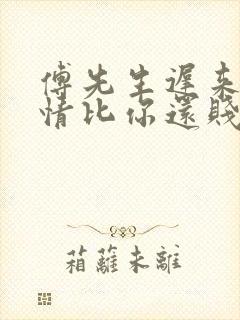 傅先生遲來
情比你還賤
箱蘿未離